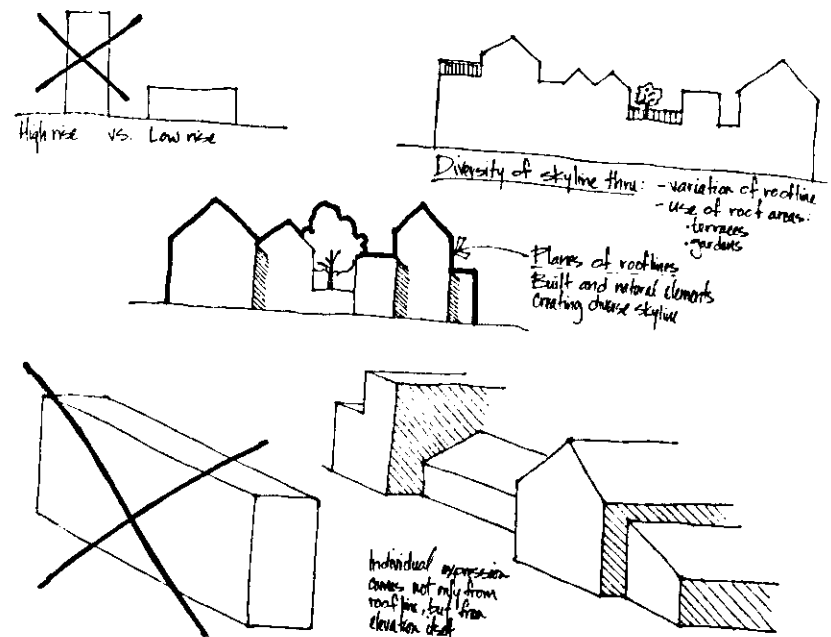 High rise vs. Low rise
Diversity of skyline thru: - variation of roofline
- use of roof areas:
• terraces
• gardens
Planes of rooflines
Built and natural elements
creating diverse skyline
Individual expression
comes not only from
roofline, but from
elevation itself